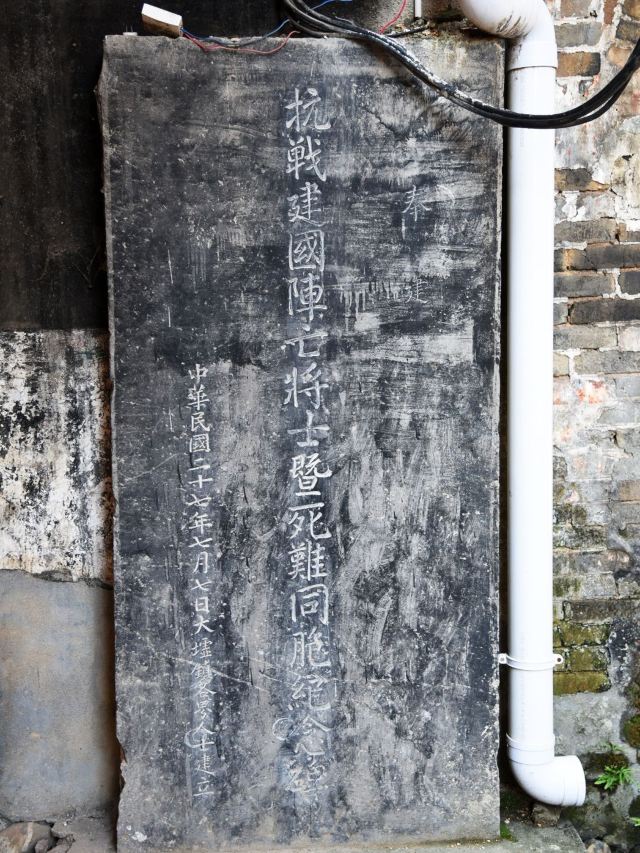 奉
建
抗戰建國陣亡將士暨死難同胞紀念碑
中華民國二十七年七月七日大墟鎮各界人士建立